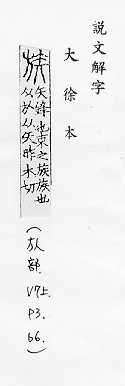 說文解字
大徐本
族 矢鋒也束之族族也
从㫃从矢昨木切
(㫃部. V7上. P3. 66.)